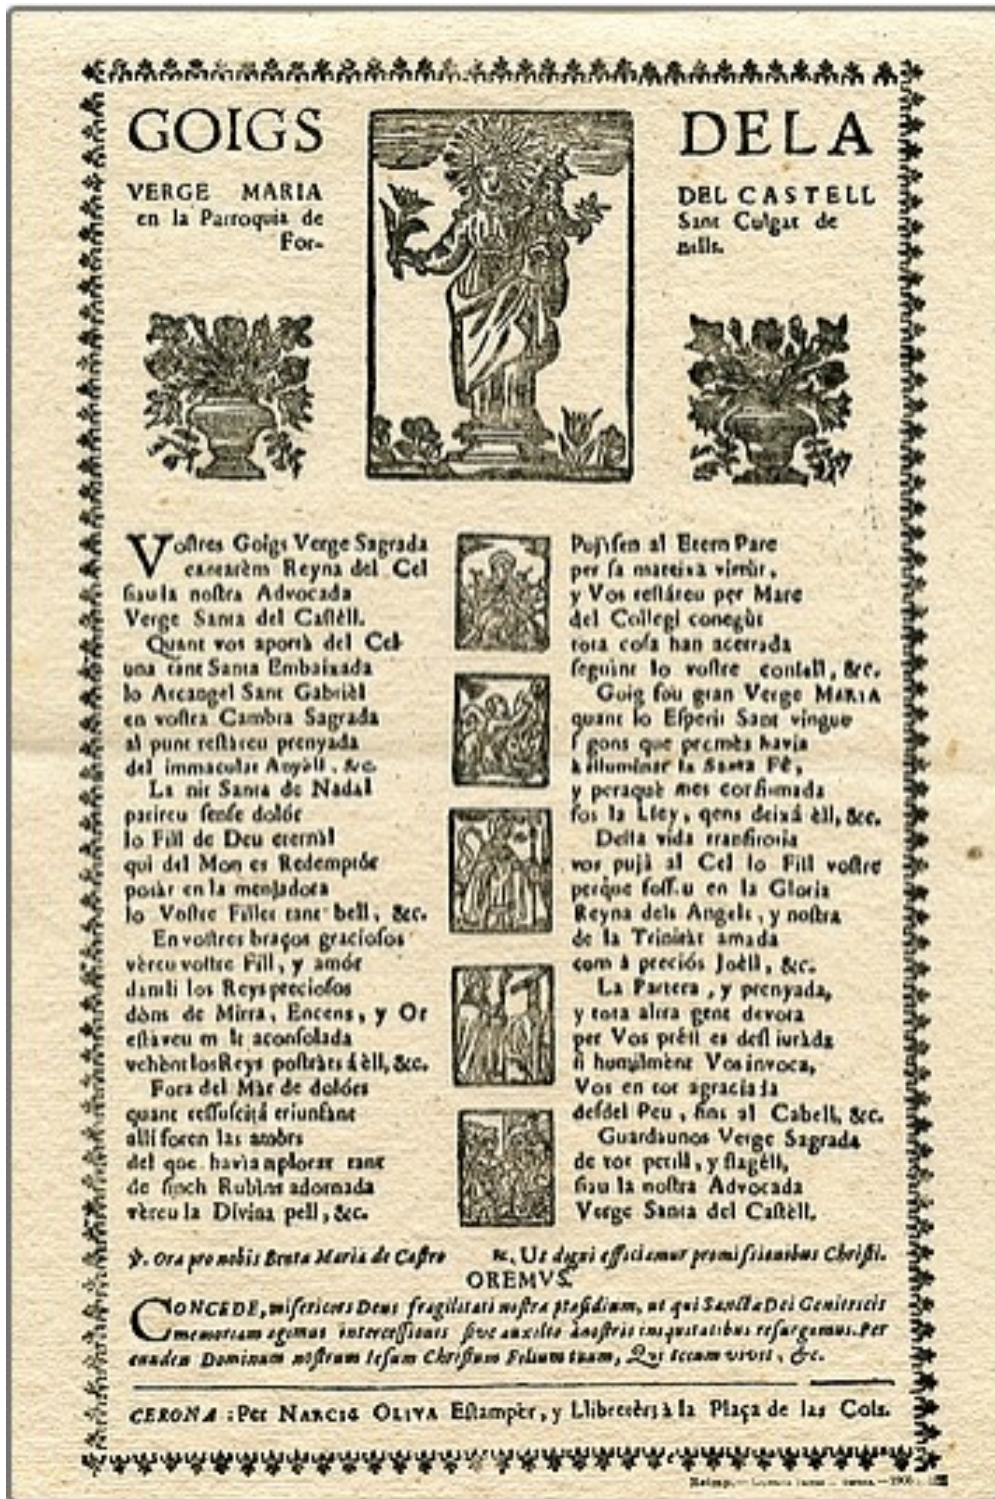 GOIGS DELA
VERGE MARIA DEL CASTELL
en la Parroquia de Sant Culgat de
For- nills.
Vostres Goigs Verge Sagrada
cantarèm Reyna del Cel
siau la nostra Advocada
Verge Santa del Castèll.
Quant vos aportà del Cel
una tant Santa Embaixada
lo Arcangel Sant Gabrièl
en vostra Cambra Sagrada
al punt restàreu prenyada
del immaculat Anyèll, &c.
La nit Santa de Nadal
parireu sense dolór
lo Fill de Deu eternàl
qui del Mon es Redemptór
posàr en la menjadora
lo Vostre Fillet tant bell, &c.
En vostres braços graciosos
vèreu vostre Fill, y amór
danli los Reys preciosos
dòns de Mirra, Encens, y Or
estàveu aconsolada
vehènt los Reys postràts á èll, &c.
Fora del Màr de dolórs
quant ressuscitá triunfant
allí foren las
del que havia plorat tant
de sinch Rubins adornada
vèreu la Divina pell, &c.
Pujàsen al Etern Pare
per sa mateixa virtùt,
y Vos restáreu per Mare
del Collegi conegùt
tota cosa han acertada
seguint lo vostre consell, &c.
Goig fou gran Verge MARIA
quant lo Esperit Sant vingue
segons que promès havia
à illuminar la Santa Fè,
y peraquè mes confirmada
fos la Lley, qens deixá èll, &c.
Desta vida transitoria
vos pujà al Cel lo Fill vostre
perque en la Gloria
Reyna dels Angels, y nostra
de la Trinitàt amada
com à preciós Joèll, &c.
La Partera, y prenyada,
y tota altra gent devota
per Vos prèst es desliuràda
si humilmènt Vos invoca,
Vos en tot agraciada
desdel Peu, fins al Cabell, &c.
Guardaunos Verge Sagrada
de tot perill, y flagèll,
siau la nostra Advocada
Verge Santa del Castèll.
℣. Ora pro nobis Beata Maria de Castro ℟. Ut digni efficiamur promissionibus Christi.
OREMVS.
CONCEDE, misericors Deus fragilitati nostra præsidium, ut qui Sanctæ Dei Genitricis
memoriam agimus intercessionis auxilio à nostris iniquitatibus resurgamus. Per
eundem Dominum nostrum Iesum Christum Filium tuum, Qui tecum vivit, &c.
CERONA : Per NARCIS OLIVA Estampèr, y Llibretèr à la Plaça de las Cols.